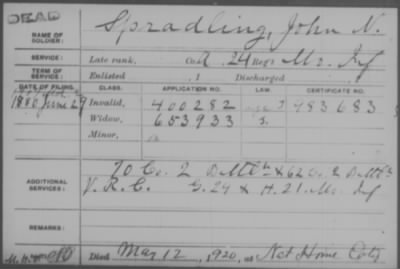 DEAD
NAME OF SOLDIER: Spradling, John N.
SERVICE: Late rank, Co. A, 24 Reg't Mo. Inf
TERM OF SERVICE: Enlisted , 1 Discharged
DATE OF FILING. CLASS. APPLICATION NO. LAW. CERTIFICATE NO.
1880 June 29 Invalid, 400282 483683
Widow, 653933
Minor,
ADDITIONAL SERVICES: 70 Co. 2 Batt'n & 62 Co. 2 Batt'n
V.R.C. G. 24 & H. 21. Mo. Inf
REMARKS:
Died May 12, 1920, at Nat Home